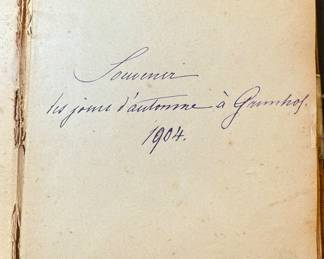 Souvenir
des jours d'automne à Grünhof.
1904.